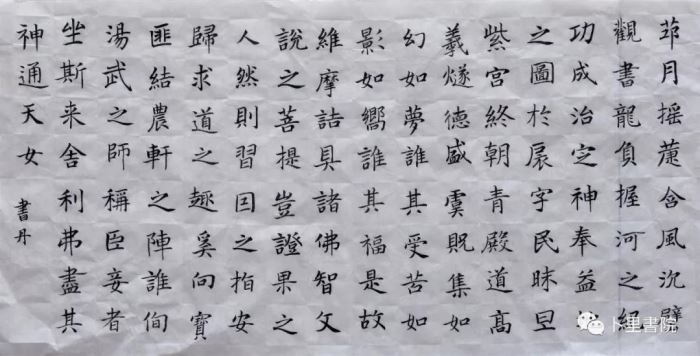 茆月摇含風沉璧
觀書龍負握河之紀
功成治定神奉益
之圖於扆字民昧旦
紫宮終朝青殿道高
羲燧德盛虞既集如
幻如夢誰其受苦如
影如嚮誰其福是故
維摩詰具諸佛智文
說之菩提豈證果之
人然則習因之指安
歸求道之趣奚向寳
匪結農軒之陣誰侚
湯武之師稱臣妾者
坐斯来舍利弗盡其
神通天女
書丹
卜里書院